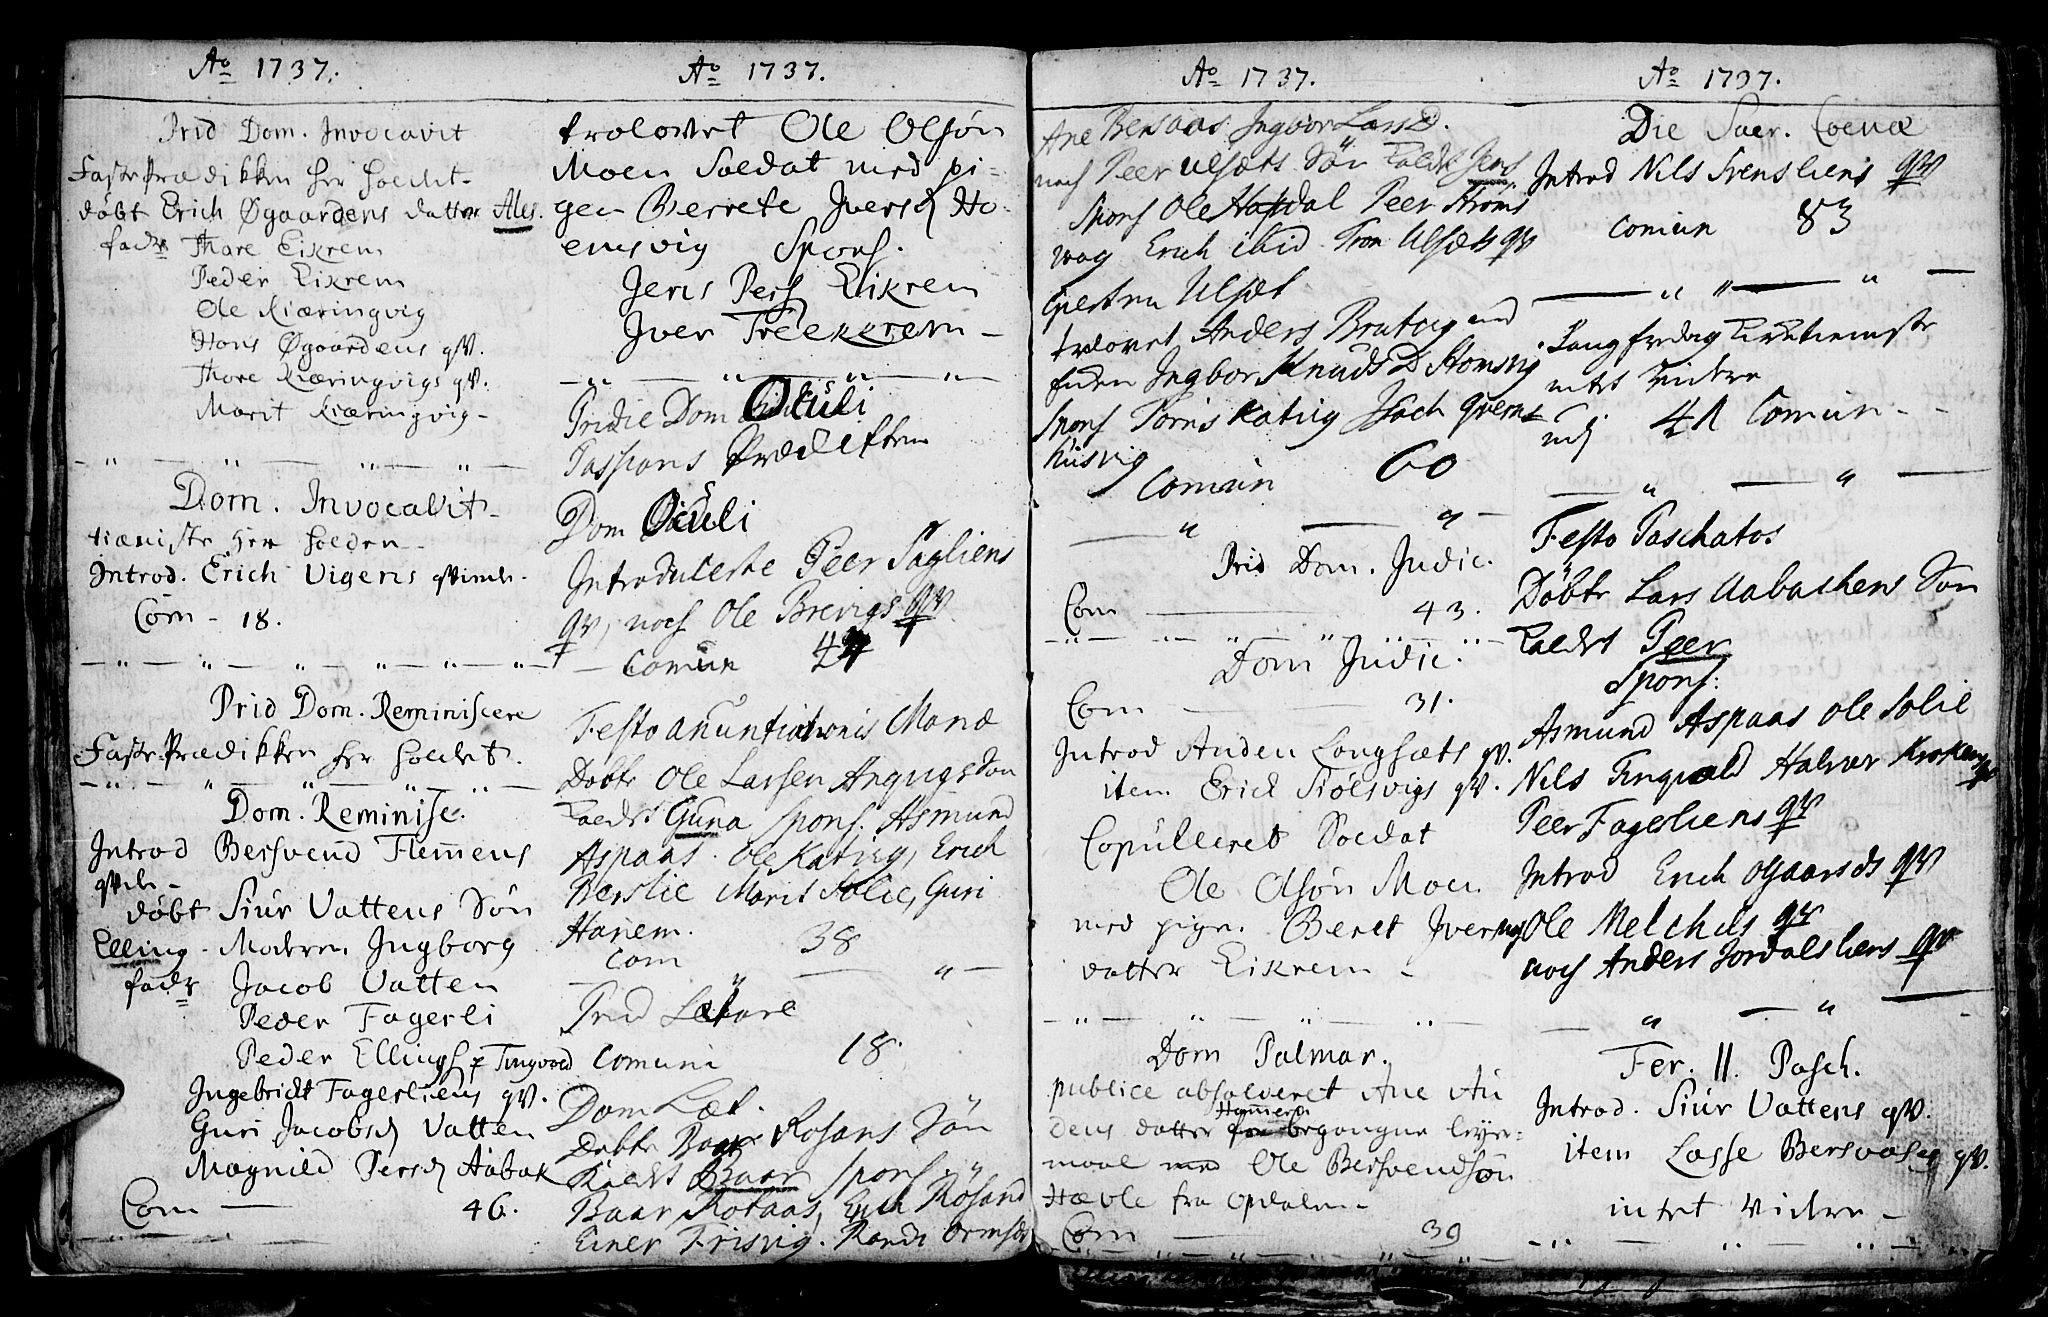 Aō 1737.
Prid Dom. Invocavit
FastePrædikken her holdet.
døbt Erich Øgaardens datter Ales.
fadr Thore Eikrem
Peder Eikrem
Ole Kiæringvig
Hans Øgaardens qv.
Thore Kiæringvigs qv.
Marit Kiæringvig -
Dom. Invocavit
tiæniste her holden -
Introd. Erich Vigens qvinde.
Com - 18.
Prid Dom. Reminiscere
FastePrædikken her holdet.
Dom. Reminisc.
Introd Bersvend Flemmens
qvide -
døbt Siur Vattens Søn
Elling - Modern. Ingborg
fadr Jacob Vatten
Peder Fagerli
Peder Ellings p Tingvold
Ingebricht Fagerliens qv.
Guri Jacobsd Vatten
Magnild Persd Aabak
Com — 46.
Aō 1737.
trolovet Ole Olsøn
Moen Soldat med pi-
gen Berrete Iversd Ho-
emsvig Spons.
Jens Pers Eikrem
Iver Treekrem -
Pridie Dom Oculi
Passions Prædiken
Dom Oculi
Introducerte Peer Fagliens
qv, noch Ole Brevigs qv
Comun
Festo anuntiationis Mariæ
Døbte Ole Larsen Angvigs Søn
kaldet Guna Spons. Asmund
Aspaas. Ole Katvig, Erich
Berslie Marit Solie, Guri
Hanem.
Com 38
Prid Lætare
Comuni 18.
Dom Læt.
Døbte Baar Rosans Søn
Kaldet Baar Spons.
Baar Rotaas, Erich Røsand
Einer Frisvig. Randi Ormsd
Aō 1737.
Ane Bersaas Ingbor LarsD.
noch Peer Ulsæts Søn kaldet Jens
Spons Ole Hafdal Peer Strøms
wag Erich ibid. Tron Ulsæts qv
Kiersten Ulsæt
trolovet Anders Brutvig med
Ingbor KnudsD Homsvig
Spons Tørris Katvig Isach Quernes
Husvig
Comun 60
Prid Dom. Judic.
Com — 43.
Dom Judic.
Com — 31.
Introd Anden Longsæts qv.
item Erich Stølsvigs qv.
Copulleret Soldat
Ole Olsøn Moen
med pign. Beret Ivers
datter Eikrem -
Dom Palmar.
publice absolveret Ane An
Hamnem
dens datter for begangne leyer-
maal med Ole Bersvendsøn
Hævle fra Opdalen -
Com — 39
Aō 1737.
Die Sacr. Coenæ
Introd Nils Svensliens qv
comun 83
Langfredag
intet videre
41 Comun -
Festo Paschatos
Døbte Lars Aabachens Søn
kaldet Peer
Spons:
Asmund Aspaas Ole Solie
Nils Tingvold Halvor Krokens
qv
Peer Fagerliens qv
Introd Erich Øgaards qv
Ole Melchils qv
noch Anders Jordalsliens qv
Fer. II. Pasch.
Introd. Siur Vattens qv.
item Lasse Bersvasen qv.
intet videre -